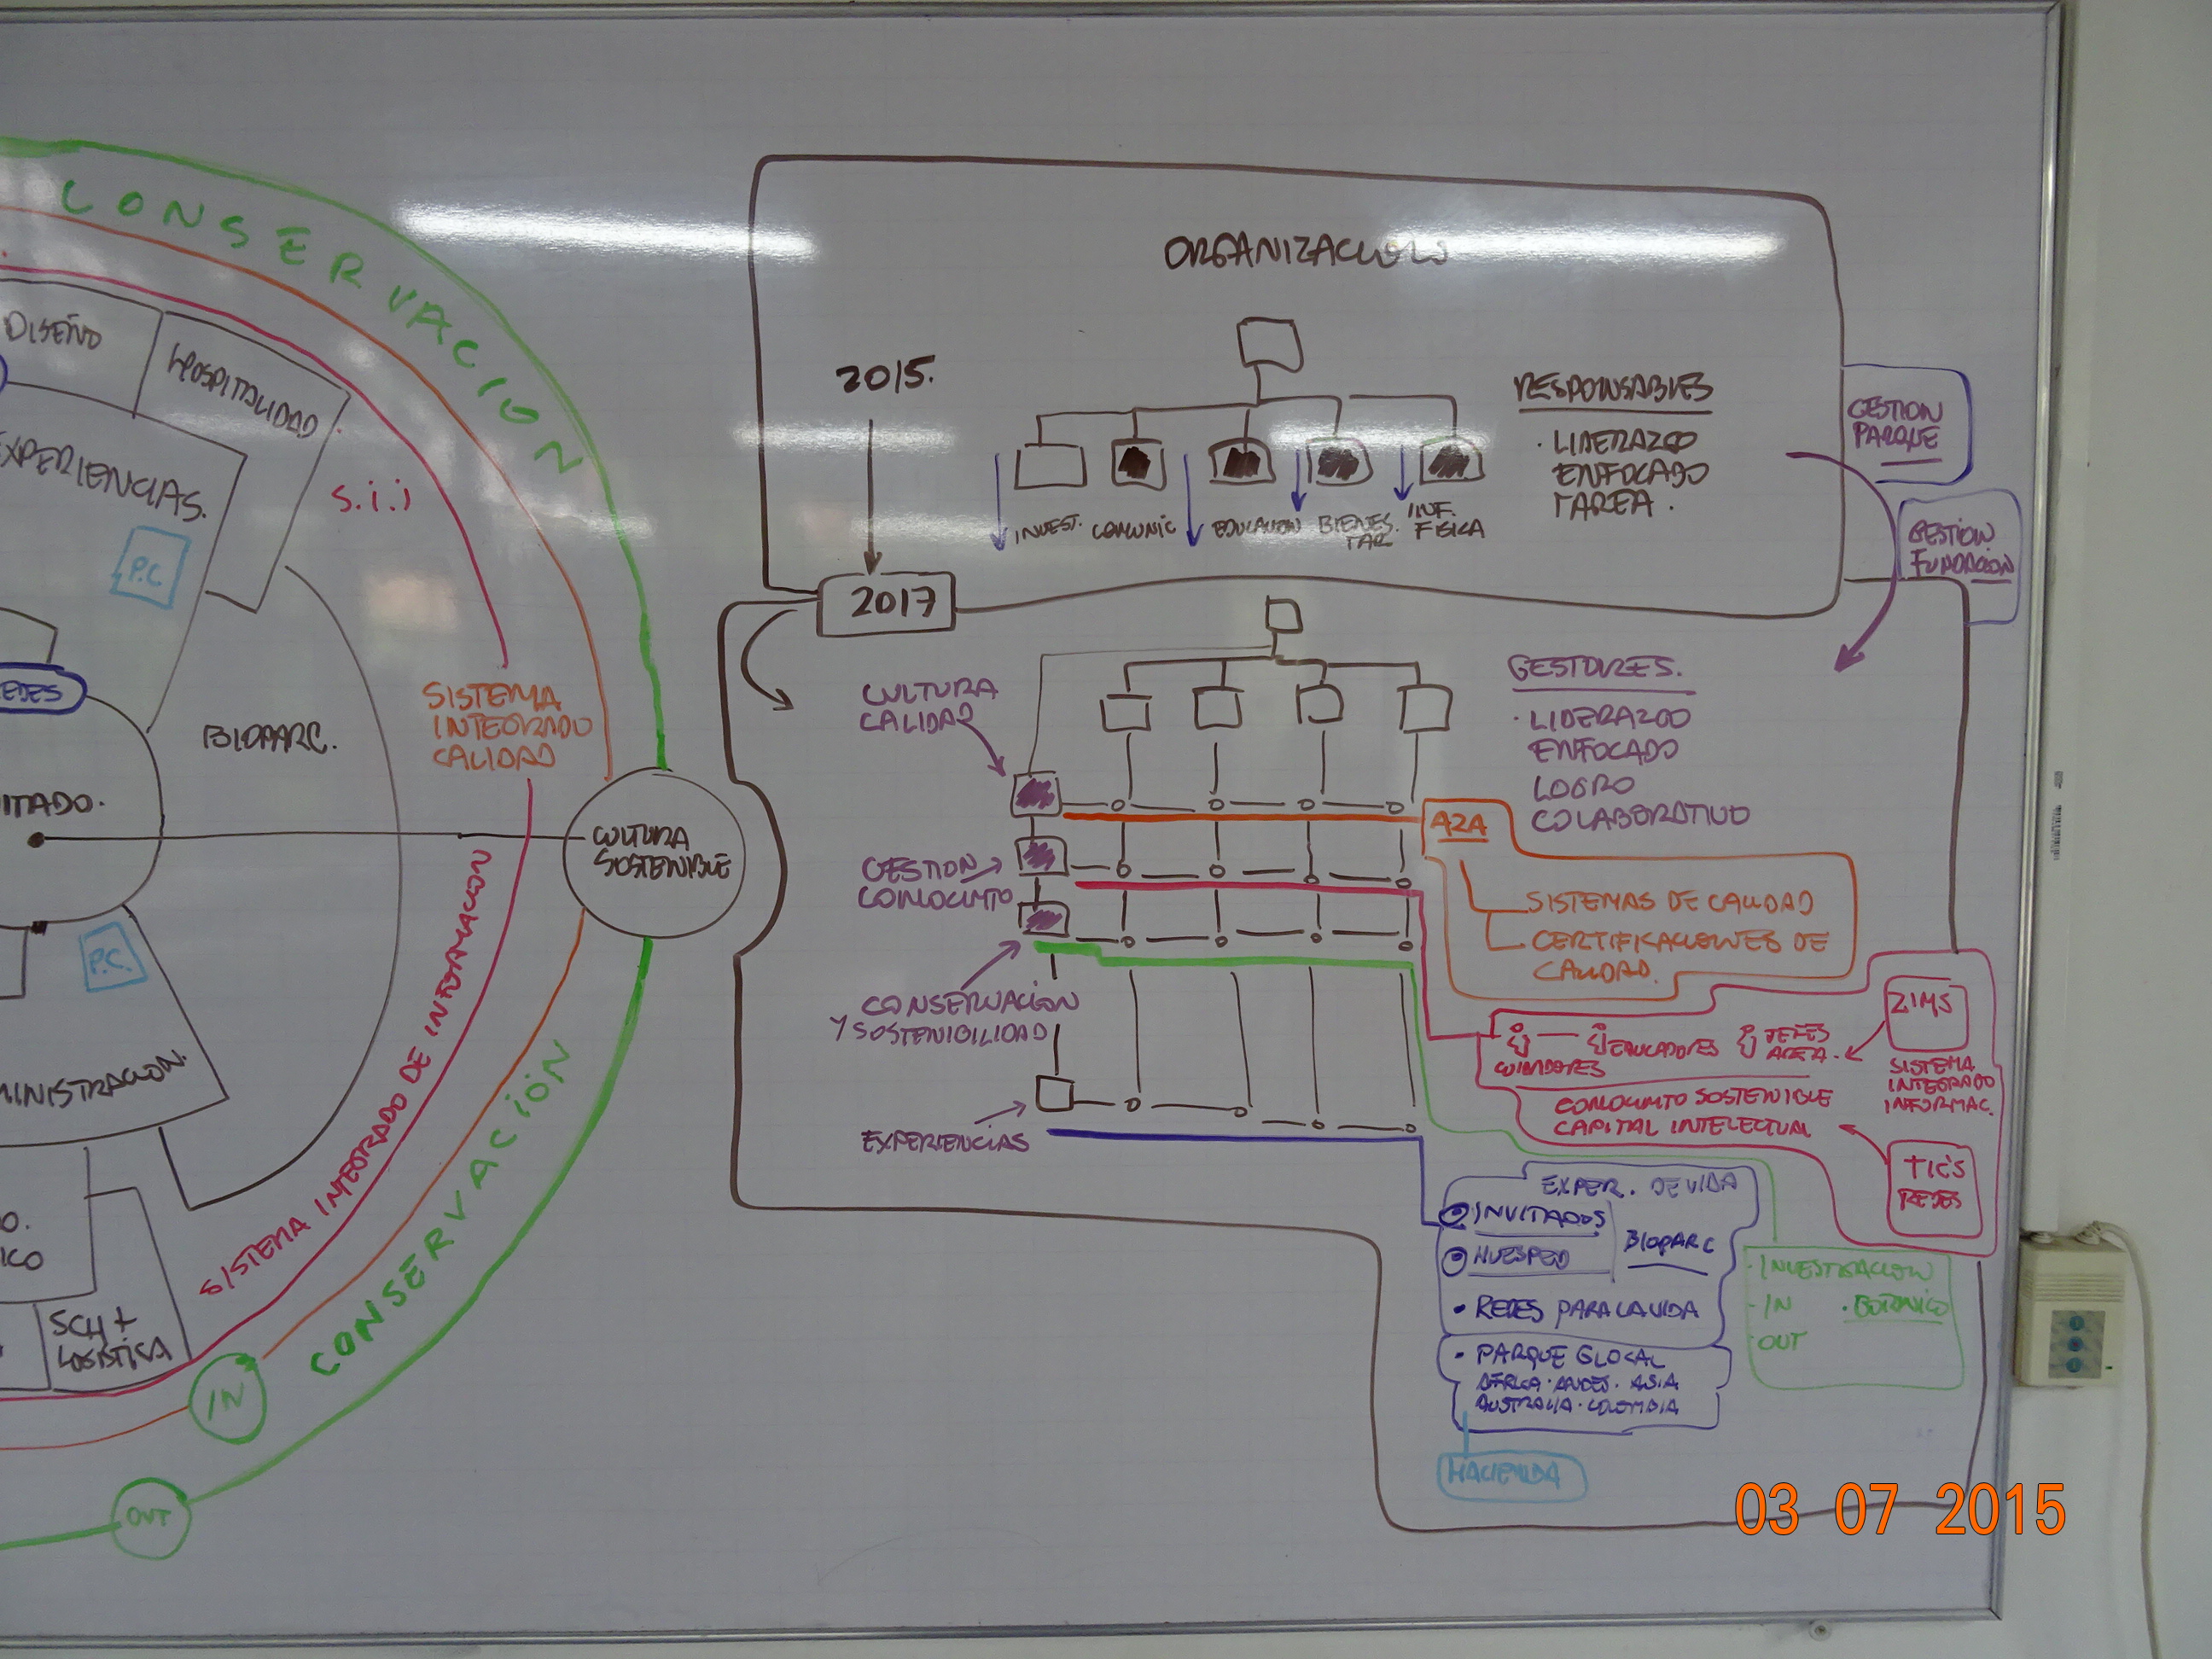 CONSERVACION
DISEÑO
HOSPITALIDAD
EXPERIENCIAS.
S.i.i
P.C.
EDES
BIOPARC.
SISTEMA
INTEGRADO
CALIDAD
ITADO.
CULTURA
SOSTENIBLE
P.C.
MINISTRACION.
SISTEMA INTEGRADO DE INFORMACION
CONSERVACIÓN
O.
ICO
SCH +
LOGISTICA
IN
OUT
ORGANIZACION
2015.
RESPONSABLES
· LIDERAZGO
ENFOCADO
TAREA.
INVEST.
COMUNIC
EDUCACION
BIENES
TAR
INF.
FISICA
GESTION
PARQUE
GESTION
FUNDACION
2017
CULTURA
CALIDAD
GESTORES.
· LIDERAZGO
ENFOCADO
LOGRO
COLABORATIVO
AZA
GESTION
CONOCIMTO
SISTEMAS DE CALIDAD
CERTIFICACIONES DE
CALIDAD.
CONSERVACIÓN
Y SOSTENIBILIDAD
ZIMS
CUIDADORES
EDUCADORES
JEFES
AREA.
SISTEMA
INTEGRADO
INFORMAC.
CONOCIMTO SOSTENIBLE
CAPITAL INTELECTUAL
TIC'S
REDES
EXPERIENCIAS
EXPER. DE VIDA
INVITADOS
HUESPED
BIOPARC
• REDES PARA LA VIDA
• PARQUE GLOCAL
AFRICA · ANDES · ASIA
AUSTRALIA · COLOMBIA
HACIENDA
· INVESTIGACION
- IN · BOTANICO
- OUT
03 07 2015